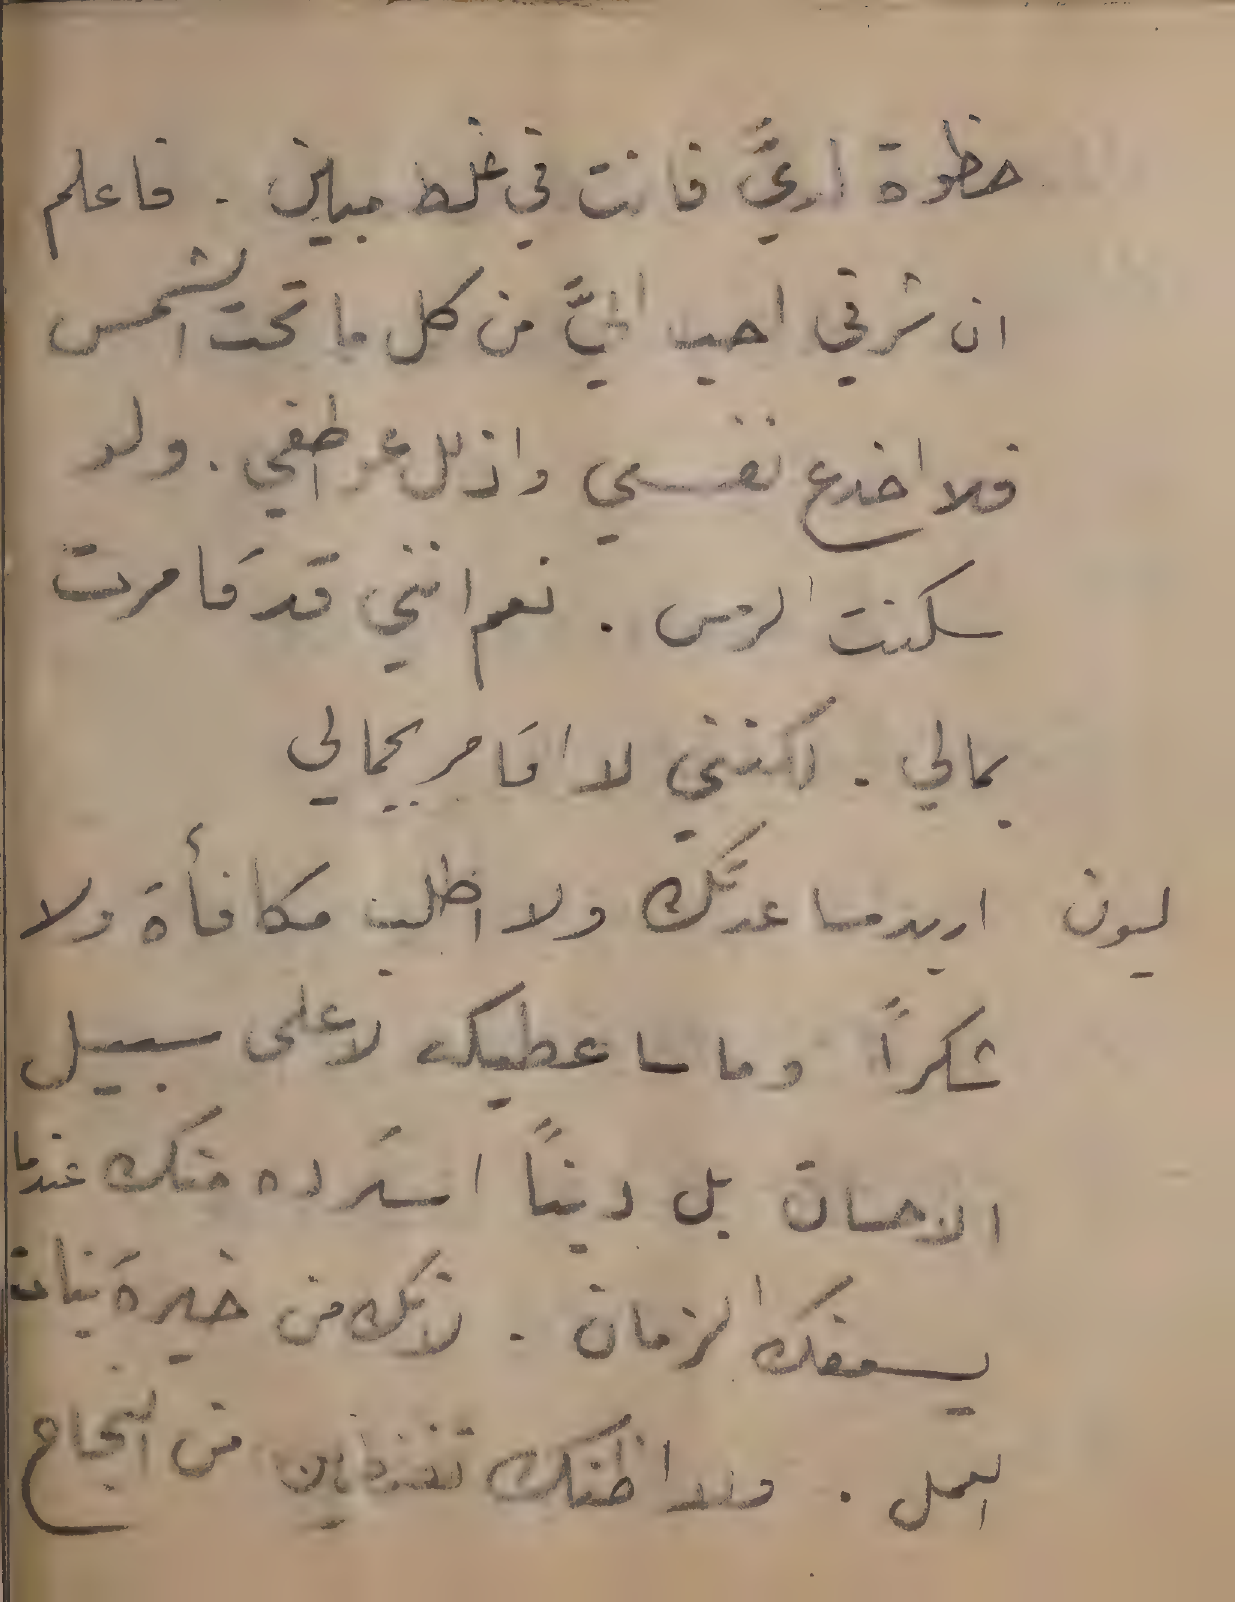 حظوة لديَّ فانت في غلط مبين . فاعلم
ان شرفي احب اليَّ من كل ما تحت الشمس
فلا اخدع نفسي واذلل عواطفي . ولو
سكنت الرمس . نعم انني قد قامرت
بمالي . لكنني لا اقامر بجمالي
ليون اريد مساعدتك ولا اطلب مكافأة ولا
شكراً وما ساعطيك لا على سبيل
الاحسان بل ديناً استرده منك عندما
يسعفك الزمان . لانك من خيرة بنات
العمل . ولا اظنك تقنطين من النجاح